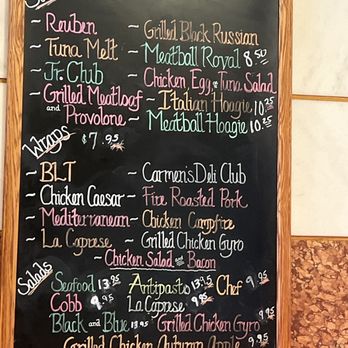 ~ Reuben ~ Grilled Black Russian
~ Tuna Melt ~ Meatball Royal 8.50
~ Jr. Club ~ Chicken, Egg, & Tuna Salad
~ Grilled Meatloaf and Provolone ~ Italian Hoagie 10.25
~ Meatball Hoagie 10.25
Wraps $7.95
~ BLT ~ Carmen's Deli Club
~ Chicken Caesar ~ Fire Roasted Pork
~ Mediterranean ~ Chicken Campfire
~ La Caprese ~ Grilled Chicken Gyro
~ Chicken Salad and Bacon
Salads
Seafood 13.95 Antipasto 13.95 Chef 9.95
Cobb 9.95 La Caprese 9.95
Black and Blue 13.95 Grilled Chicken Gyro 9.95
Grilled Chicken Autumn Apple 9.95